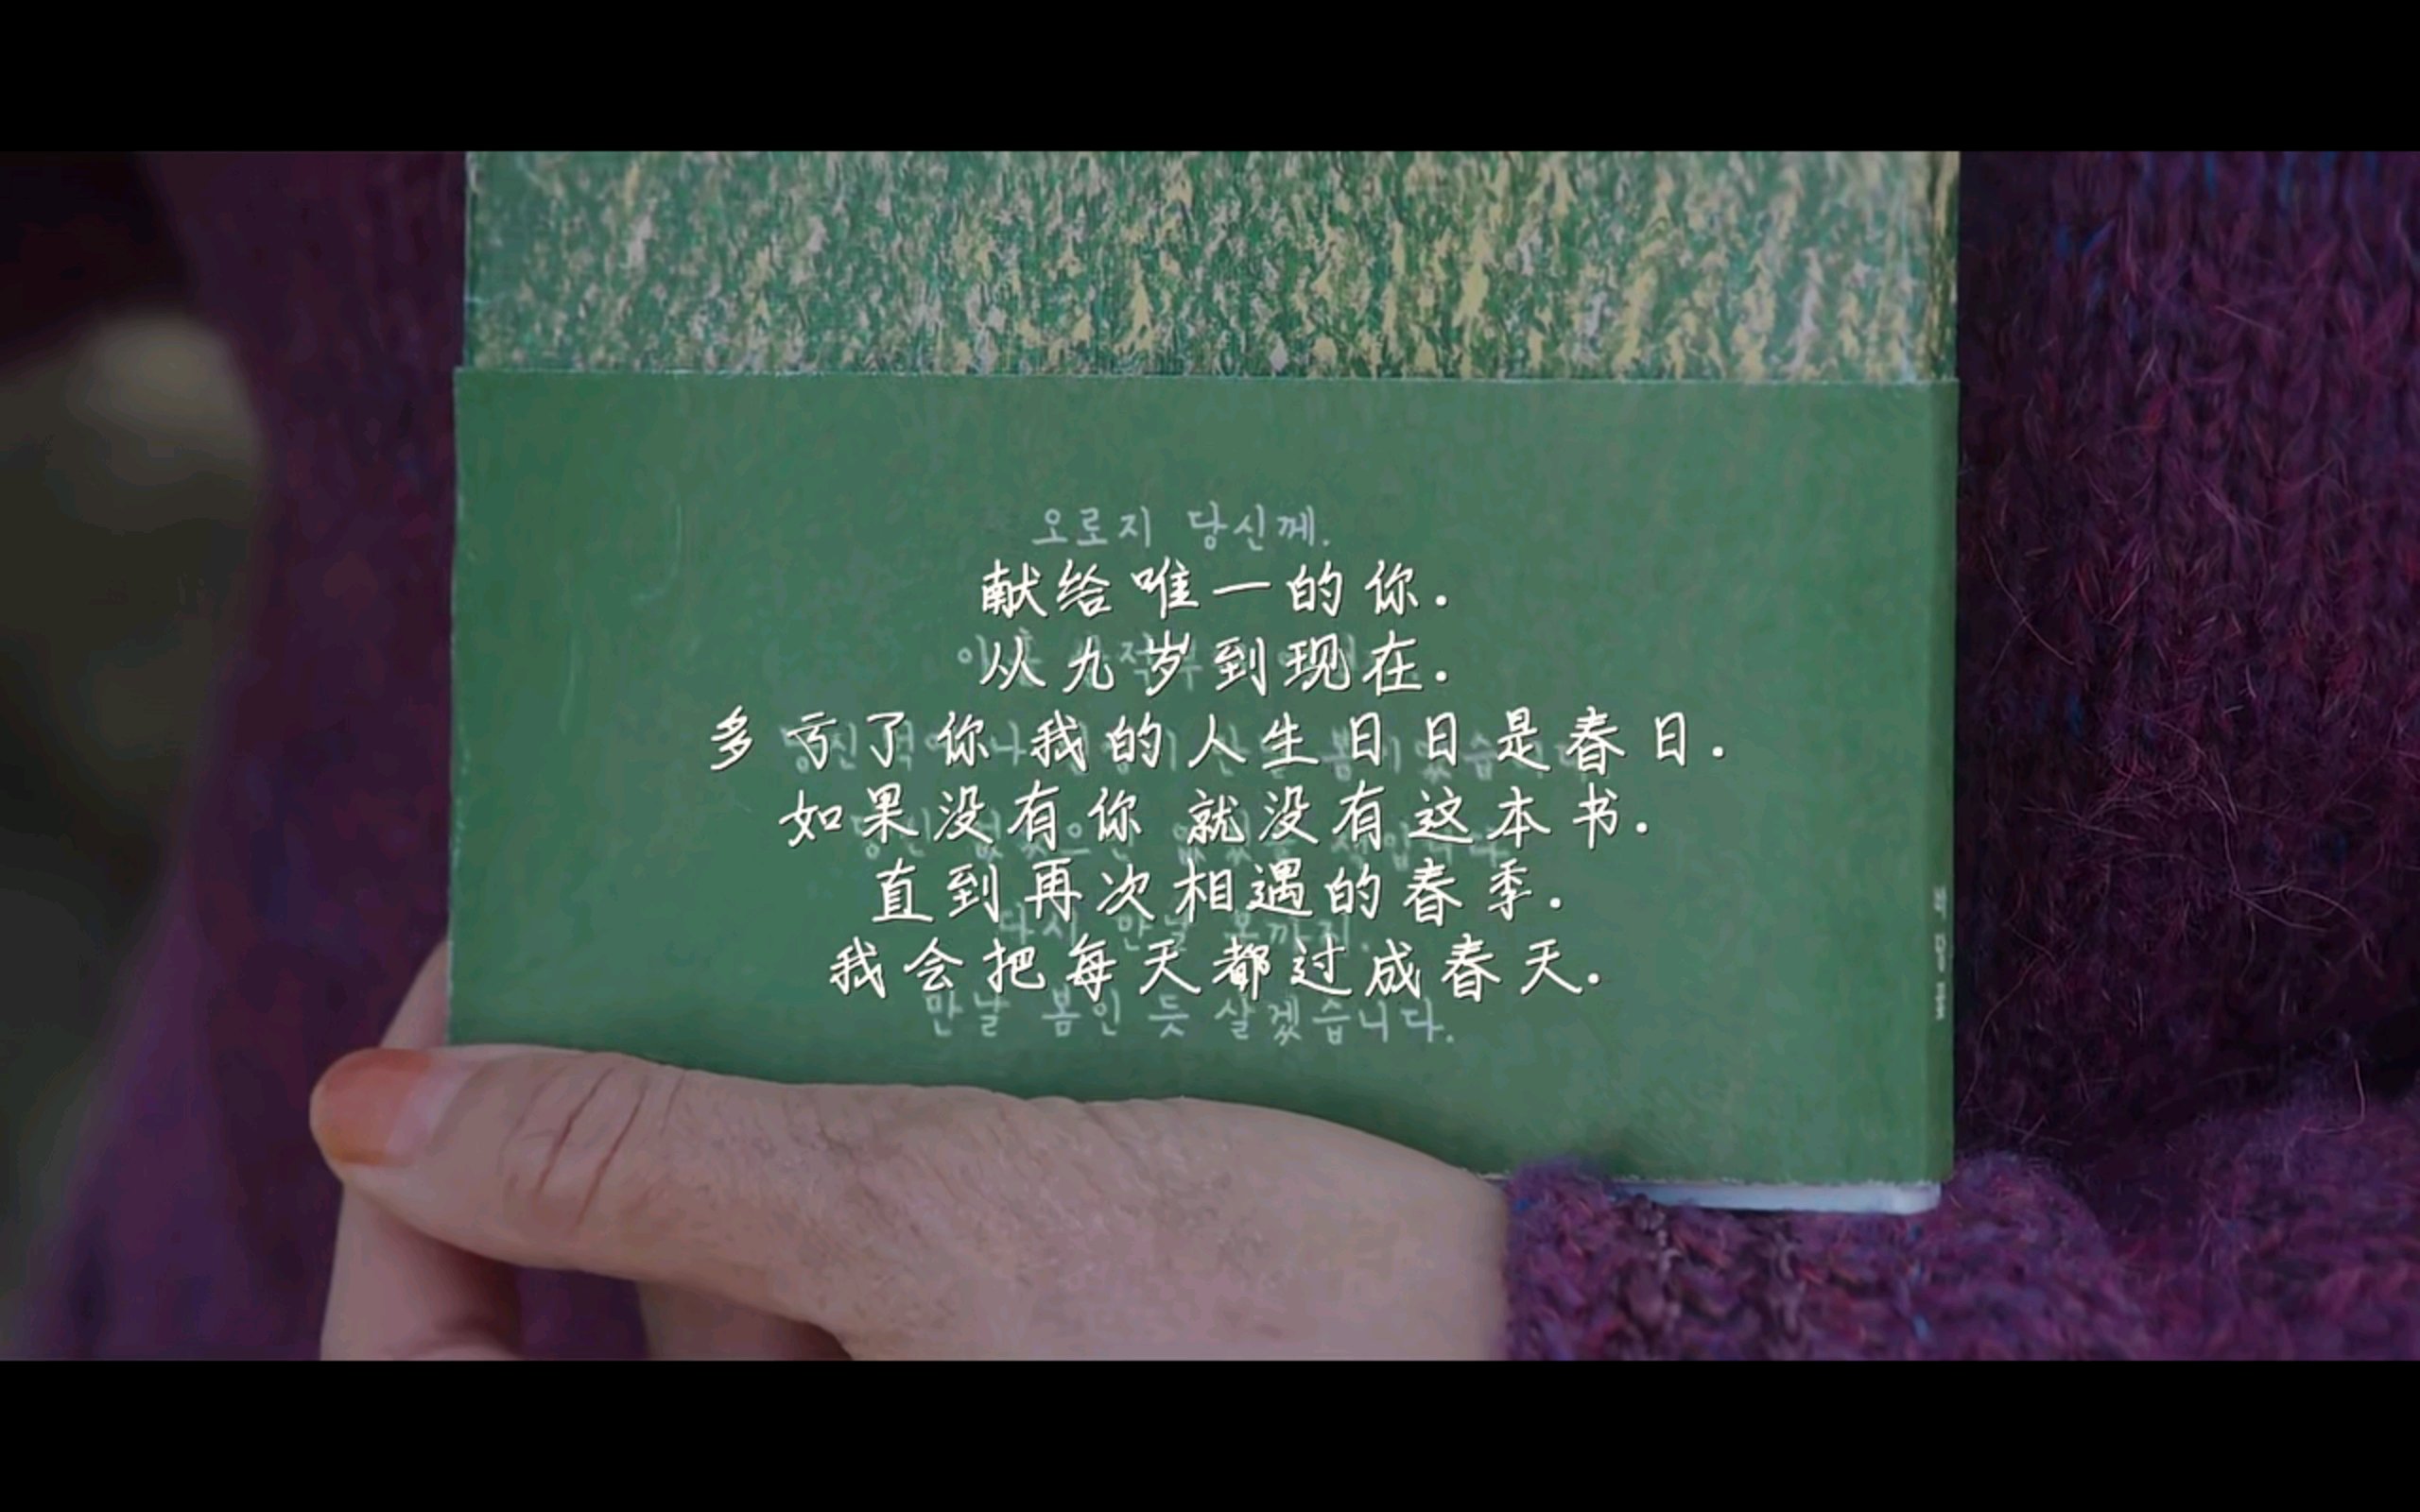 오로지 당신께.
献给唯一的你.
从九岁到现在.
多亏了你 我的人生日日是春日.
如果没有你 就没有这本书.
直到再次相遇的春季.
다시 만날 봄까지.
我会把每天都过成春天.
만날 봄인 듯 살겠습니다.